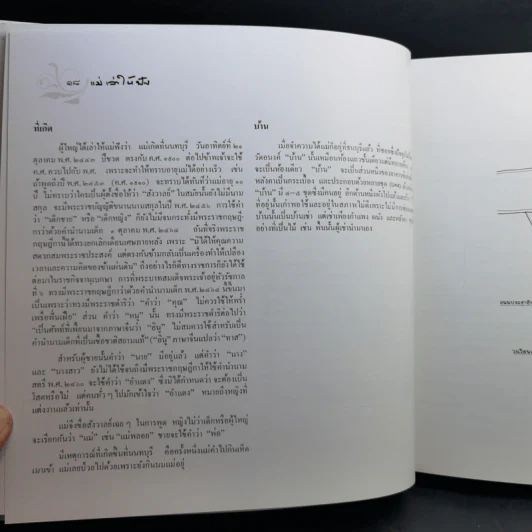 ๑๘ แม่เล่าให้ฟัง
ที่เกิด
ผู้ใหญ่ได้เล่าให้แม่ฟังว่า แม่เกิดที่นนทบุรี วันอาทิตย์ที่ ๒๑
ตุลาคม พ.ศ. ๒๔๔๓ ปีชวด ตรงกับ ค.ศ. ๑๙๐๐ ต่อไปข้าพเจ้าจะใช้
ค.ศ. ควบไปกับ พ.ศ. เพราะจะทำให้ทราบอายุแม่ได้อย่างเร็ว เช่น
ถ้าพูดถึงปี พ.ศ. ๒๔๕๓ (ค.ศ. ๑๙๑๐) จะทราบได้ทันทีว่าแม่อายุ ๑๐
ปี ไม่ทราบว่าใครเป็นผู้ตั้งชื่อให้ว่า "สังวาลย์" ในสมัยนั้นยังไม่มีนาม
สกุล จะมีพระราชบัญญัติขนานนามสกุลในปี พ.ศ. ๒๔๕๖ การใช้คำ
ว่า "เด็กชาย" หรือ "เด็กหญิง" ก็ยังไม่มีจนกระทั่งมีพระราชกฤษฎี-
กาว่าด้วยคำนำนามเด็ก ๑ ตุลาคม พ.ศ. ๒๔๖๔ ทันทีที่จริงพระราช
กฤษฎีกานี้ได้ทรงยกเลิกเดือนเศษถายหลัง เพราะ "มิได้ให้คุณความ
สะดวกสมพระราชประสงค์ แต่ตรงกันข้ามกลับเป็นเครื่องทำให้เปลือง
เวลาและความคิดของข้าแผ่นดิน" ถึงอย่างไรก็ดีทางราชการก็ยังได้ใช้
ต่อมาในราชกิจจานุเบกษา การที่พระบาทสมเด็จพระเจ้าอยู่หัวรัชกาล
ที่ ๖ ทรงมีพระราชกฤษฎีกาว่าด้วยคำนำนามเด็ก พ.ศ. ๒๔๖๔ ขึ้นมา
เป็นเพราะว่าทรงมีพระราชดำริว่า "คำว่า "คุณ" ไม่ควรใช้ให้พร่ำ
เพรื่อฟั่นเฝือ" ส่วน คำว่า "หนู" นั้น ทรงมีพระราชดำริต่อไปว่า
"เป็นศัพท์ที่เพี้ยนมาจากภาษาจีนว่า "อีนู" ไม่สมควรใช้สำหรับเป็น
คำนำนามเด็กที่เป็นเชื้อชาติสยามแท้" ("อีนู" ภาษาจีนแปลว่า "ทาส")
สำหรับผู้ชายนั้นคำว่า "นาย" มีอยู่แล้ว แต่คำว่า "นาง"
และ "นางสาว" ยังไม่ได้ใช้จนถึงมีพระราชกฤษฎีกาให้ใช้คำนำนาม
สตรี พ.ศ. ๒๔๖๐ จะใช้คำว่า "อำแดง" ซึ่งมิได้กำหนดว่า จะต้องเป็น
โสดหรือไม่ แต่คนทั่วๆ ไปมักเข้าใจว่า "อำแดง" หมายถึงหญิงที่
แต่งงานแล้วเท่านั้น
แม่จึงชื่อสังวาลย์เฉยๆ ในการพูด หญิงไม่ว่าเด็กหรือผู้ใหญ่
จะเรียกกันว่า "แม่" เช่น "แม่พลอย" ชายจะใช้คำว่า "พ่อ"
มีเหตุการณ์ที่เกิดขึ้นที่นนทบุรี คือครั้งหนึ่งแม่ดำไปกินเห็ด
เมาเข้า แม่เลยป่วยไปด้วยเพราะยังกินนมแม่อยู่
บ้าน
เมื่อจำความได้แม่ก็อยู่ที่ธนบุรีแล้ว ที่ซอยซึ่งมีอยู่
วัดอนงค์ "บ้าน" นั้นเหมือนห้องแถว
จะเป็นห้องเดียว "บ้าน" จะเป็นส่วนหนึ่งของ
หลังคาเป็นกระเบื้อง และประกอบด้วยหลายชุด
"บ้าน" มี ๔-๕ ชุดซึ่งมีคนอยู่ อีกด้านหนึ่ง
ที่อยู่นั้นเก่าพอใช้และอยู่ในสภาพไม่ดี
บ้านนั้นเป็นบ้านเช่า แต่เช่าเพียงกำแพง ผนัง และหลังคา
อย่างที่เป็นไม้ เช่น พื้นนั้นผู้เช่านำมาเอง